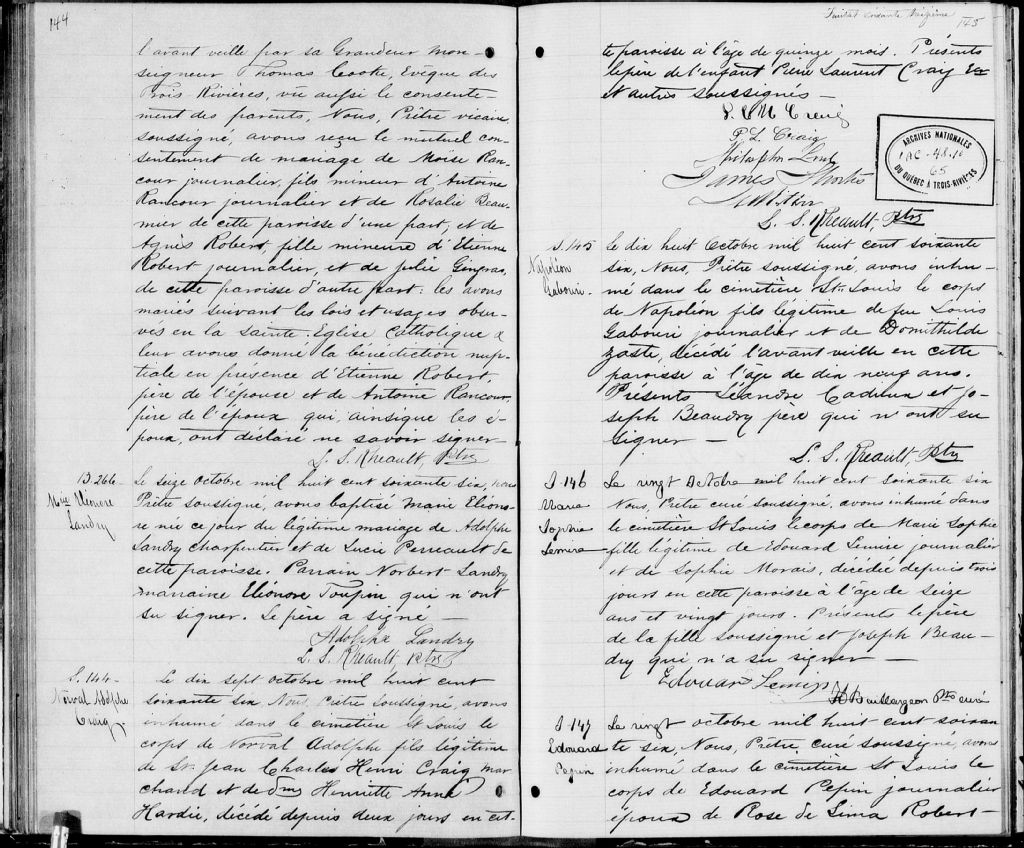 144
l'avant veille par sa Grandeur Mon-
seigneur Thomas Cooke, Evêque des
Trois-Rivières, vu aussi le consente-
ment des parents, Nous, Prêtre vicaire
soussigné, avons reçu le mutuel con-
sentement de mariage de Moïse Ran-
cour journalier, fils mineur d'Antoine
Rancour journalier et de Rosalie Beau-
mier de cette paroisse d'une part, et de
Agnès Robert, fille mineure d'Etienne
Robert journalier, et de Julie Gingras,
de cette paroisse d'autre part: les avons
mariés suivant les lois et usages obser-
vés en la sainte Eglise Catholique &
leur avons donné la bénédiction nup-
tiale en présence d'Etienne Robert,
père de l'épouse et de Antoine Rancour,
père de l'époux qui, ainsi que les é-
poux, ont déclaré ne savoir signer
L. S. Rheault, Ptre
B. 266
Mie Eléonore
Landry
Le seize octobre mil huit cent soixante six, nous
Prêtre soussigné, avons baptisé Marie Eléono-
re née ce jour du légitime mariage de Adolphe
Landry charpentier et de Lucie Perreault de
cette paroisse. Parrain Norbert Landry
marraine Eléonore Toupin qui n'ont
su signer. Le père a signé —
Adolphe Landry
L. S. Rheault, Ptre
S. 144
Norval Adolphe
Craig
Le dix sept octobre mil huit cent
soixante six, Nous, Prêtre soussigné, avons
inhumé dans le cimetière St Louis le
corps de Norval Adolphe fils légitime
de St. Jean Charles Henri Craig mar
chand et de Dme Henriette Anna
Hardie, décédé depuis deux jours en cet-
145
te paroisse à l'âge de quinze mois. Présents
le père de l'enfant Pierre Laurent Craig Ecr
et autres soussignés —
P. L. Craig
James Shortis
L. S. Rheault, Ptre
ARCHIVES NATIONALES
DU QUÉBEC À TROIS-RIVIÈRES
65
S. 145
Napoléon
Gabouri.
Le dix huit Octobre mil huit cent soixante
six, Nous, Prêtre soussigné, avons inhu-
mé dans le cimetière St. Louis le corps
de Napoléon fils légitime de feu Louis
Gabouri journalier et de Domithilde
zaste, décédé l'avant veille en cette
paroisse à l'âge de dix neuf ans.
Présents Léandre Cadieux et Jo-
seph Beaudry père qui n'ont su
signer —
L. S. Rheault, Ptre
S 146
Marie
Sophie
Lemire
Le vingt Octobre mil huit cent soixante six
Nous, Prêtre curé soussigné, avons inhumé dans
le cimetière St Louis le corps de Marie Sophie
fille légitime de Edouard Lemire journalier
et de Sophie Morais, décédée depuis trois
jours en cette paroisse à l'âge de seize
ans et vingt jours. Présents le père
de la fille soussigné et Joseph Beau-
dry qui n'a su signer —
Edouar Lemire
Baillargeon Ptre curé
S 147
Edouard
Pepin
Le vingt octobre mil huit cent soixan
te six, Nous, Prêtre curé soussigné, avons
inhumé dans le cimetière St Louis le
corps de Edouard Pepin journalier
époux de Rose de Lima Robert —